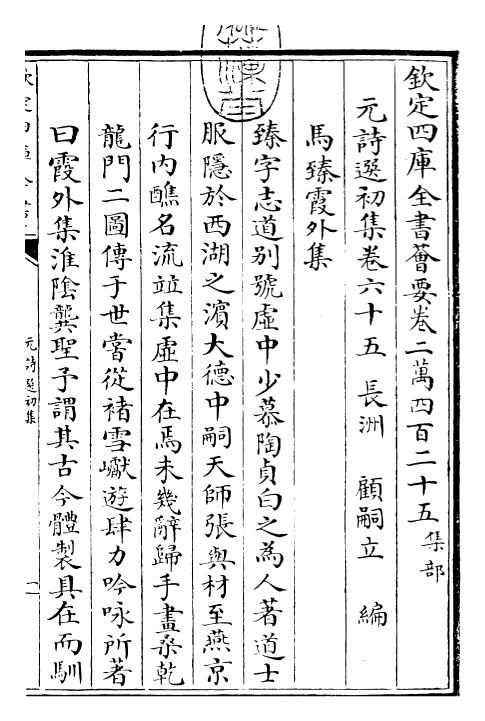 欽定四庫全書薈要卷二萬四百二十五 集部
元詩選初集卷六十五 長洲 顧嗣立 編
馬臻霞外集
臻字志道别號虛中少慕陶貞白之為人著道士
服隱於西湖之濱大德中嗣天師張與材至燕京
行内醮名流並集虛中在焉未幾辭歸手畫桑乾
龍門二圖傳于世嘗從褚雪巘遊肆力吟咏所著
曰霞外集淮隂龔聖予謂其古今體製具在而馴
元詩選初集